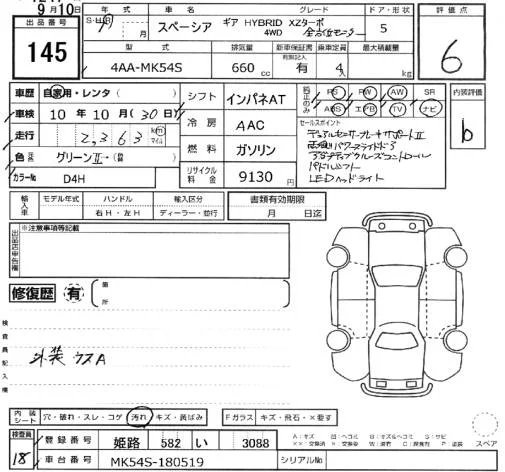 9月10日
出品番号 145
年式 車名 グレード ドア・形状 評価点
月 スペーシア ギア HYBRID XZターボ 4WD 5 6
型式 排気量 新車保証書 乗車定員 最大積載量
4AA-MK54S 660cc 有 4人 kg
車歴 自家用・レンタ( )
車検 10年10月(30日)
走行 2,363 km マイル
色 グリーンⅡ
カラーNo D4H
シフト インパネAT
冷房 AAC
燃料 ガソリン
リサイクル料金 9130円
純正のみ PS PW AW SR
ABS エアB TV ナビ
内装評価 b
セールスポイント
デュアルセンサーブレーキサポートⅡ
両側パワースライドドア
アダプティブクルーズコントロール
パドルシフト
LEDヘッドライト
輸入車 モデル年式 ハンドル 輸入区分 書類有効期限
右H・左H ディーラー・並行 月 日迄
出品店申告欄 ※注意事項等記載
修復歴 有 箇所
検査員記入欄
外装 ウスA
内装シート 穴・破れ・スレ・コゲ 汚れ キズ・黄ばみ Fガラス キズ・飛石・×要す
検査員 18
登録番号 姫路 582 い 3088
車台番号 MK54S-180519 シリアルNo
スペア